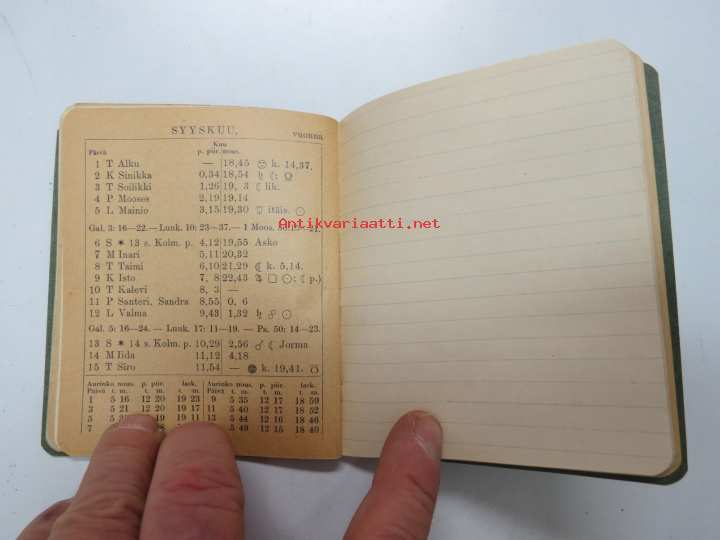 SYYSKUU, VUONNA
Kuu
Päivä p. piir. nous.
1 T Alku — 18,45 k. 14,37.
2 K Sinikka 0,34 18,54 ♄ ☾; ♀
3 T Soilikki 1,26 19, 3 ☾ lik.
4 P Mooses 2,19 19,14
5 L Mainio 3,15 19,30 ☿ itäis. ☉
Gal. 3: 16—22. — Luuk. 10: 23—37. — 1 Moos.
6 S ✷ 13 s. Kolm. p. 4,12 19,55 Asko
7 M Inari 5,11 20,32
8 T Taimi 6,10 21,29 ☾ k. 5,14.
9 K Isto 7, 8 22,43 ♃ □ ☉; ☾ p.)
10 T Kalevi 8, 3 —
11 P Santeri, Sandra 8,55 0, 6
12 L Valma 9,43 1,32 ♄ ☍ ☉
Gal. 5: 16—24. — Luuk. 17: 11—19. — Ps. 50: 14—23.
13 S ✷ 14 s. Kolm. p. 10,29 2,56 ♂ ☾ Jorma
14 M Iida 11,12 4,18
15 T Siro 11,54 — ● k. 19,41. ☋
Aurinko nous. p. piir. lask. Aurinko nous. p. piir. lask.
Päivä t. m. t. m. t. m. Päivä t. m. t. m. t. m.
1 5 16 12 20 19 23 9 5 35 12 17 18 59
3 5 21 12 20 19 17 11 5 40 12 17 18 52
5 5 19 19 11 13 5 44 12 16 18 46
7 5 49 12 15 18 40
Antikvariaatti.net